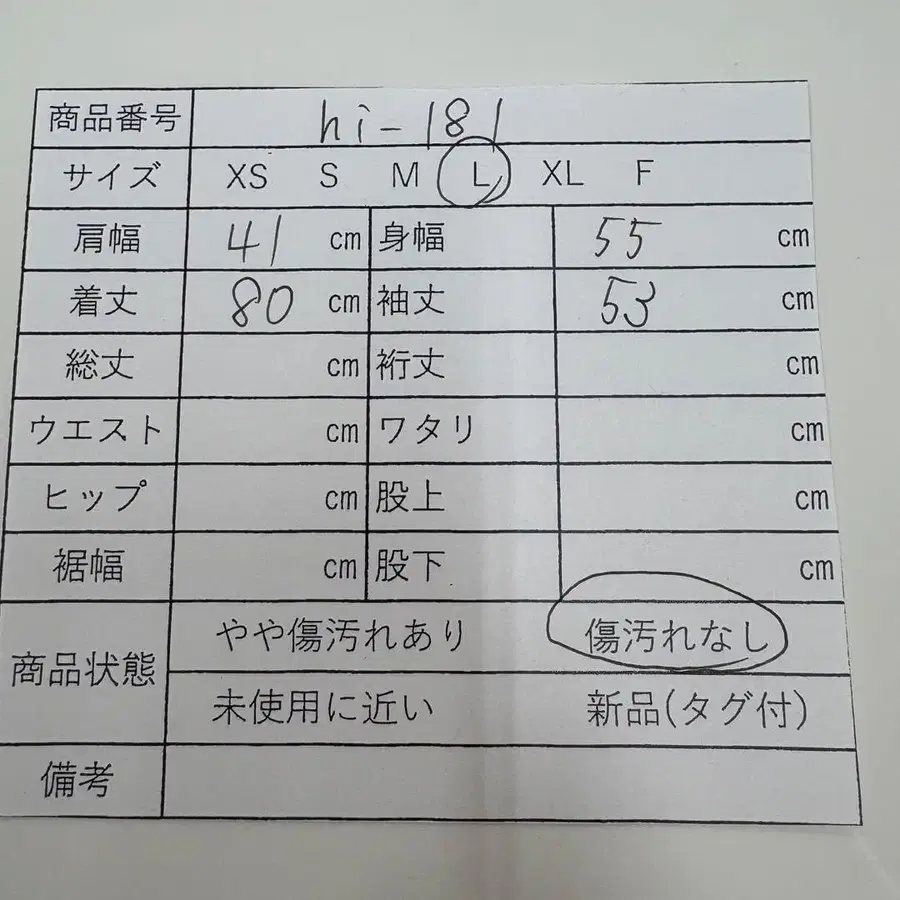 商品番号 hi-181
サイズ XS S M L XL F
肩幅 41 cm 身幅 55 cm
着丈 80 cm 袖丈 53 cm
総丈 cm 裄丈 cm
ウエスト cm ワタリ cm
ヒップ cm 股上 cm
裾幅 cm 股下 cm
商品状態 やや傷汚れあり 傷汚れなし
未使用に近い 新品(タグ付)
備考